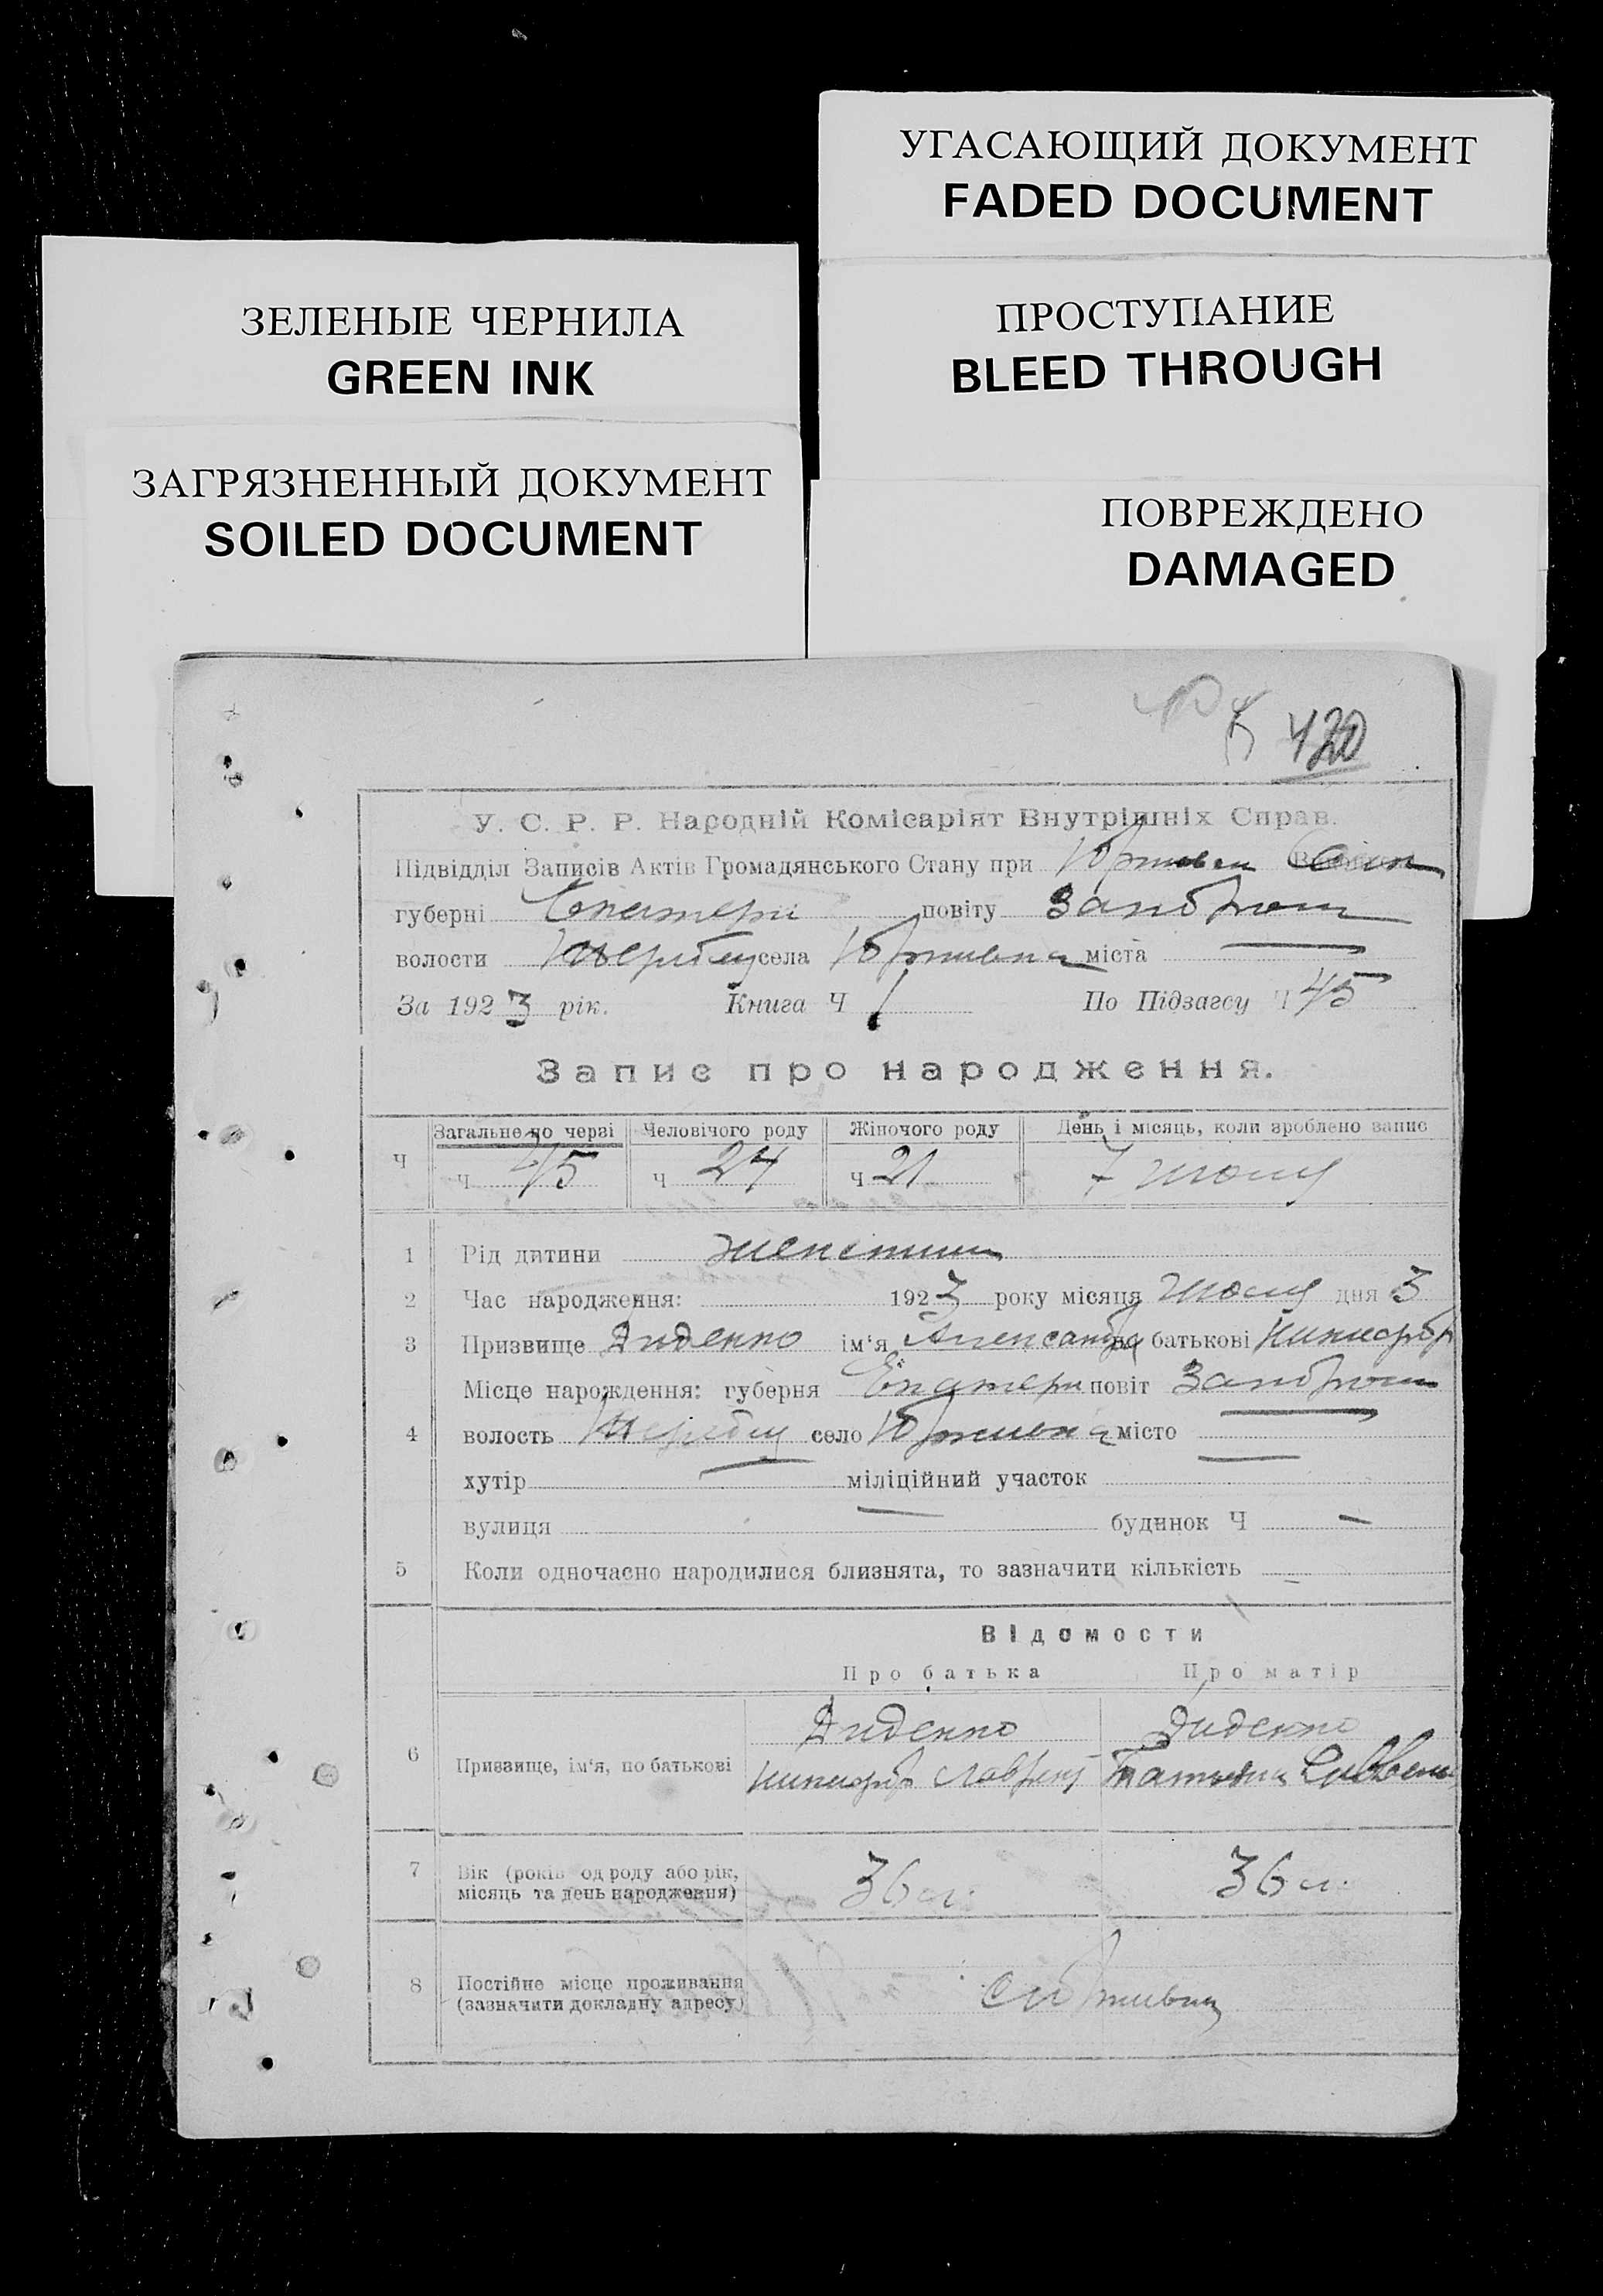 УГАСАЮЩИЙ ДОКУМЕНТ
FADED DOCUMENT
ЗЕЛЕНЫЕ ЧЕРНИЛА
GREEN INK
ПРОСТУПАНИЕ
BLEED THROUGH
ЗАГРЯЗНЕННЫЙ ДОКУМЕНТ
SOILED DOCUMENT
ПОВРЕЖДЕНО
DAMAGED
420
У. С. Р. Р. Народній Комісаріят Внутрішніх Справ.
Підвідділ Записів Актів Громадянського Стану при
губерні Екатери повіту Запорож
волости села міста
За 1923 рік. Книга Ч 1 По Підзагсу Ч 45
Запис про народження.
Ч Загальне по черзі Человічого роду Жіночого роду День і місяць, коли зроблено запис
Ч 45 Ч 24 Ч 21 7
1 Рід дитини женский
2 Час народження: 1923 року місяця дня 3
3 Призвище Диденко ім'я Александра по батькові Никифор
Місце народження: губерня Екатери повіт Запорож
4 волость село місто
хутір міліційний участок
вулиця — будинок Ч —
5 Коли одночасно народилися близнята, то зазначити кількість —
Відомости
Про батька Про матір
Диденко Диденко
6 Призвище, ім'я, по батькові Никифор Лаврент Татьяна Саввени
7 Вік (років од роду або рік, місяць та день народження) 36 л. 36 л.
8 Постійне місце проживання
(зазначити докладну адресу)